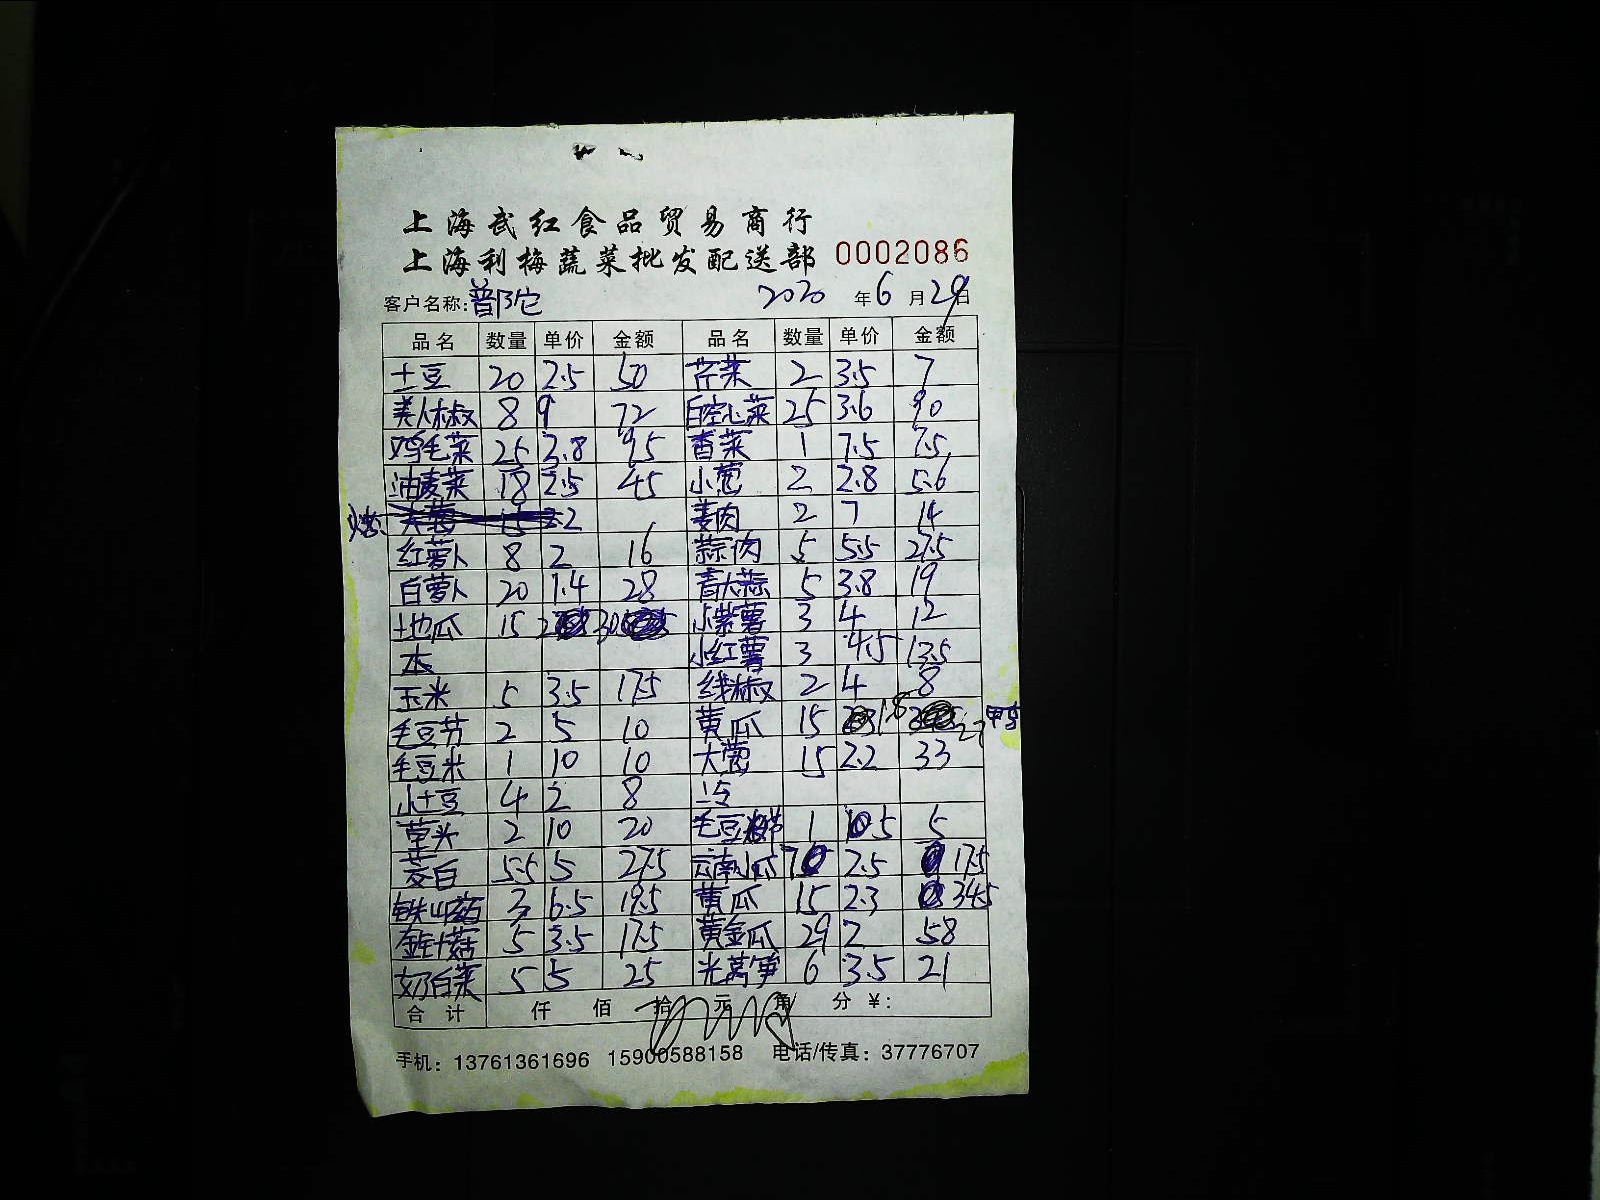 上海武红食品贸易商行
上海利梅蔬菜批发配送部 0002086
客户名称:普陀 2020 年 6 月 29 日
品名 数量 单价 金额 品名 数量 单价 金额
土豆 20 2.5 50 芹菜 2 3.5 7
美人椒 8 9 72 白空心菜 25 3.6 90
鸡毛菜 25 3.8 95 香菜 1 7.5 7.5
油麦菜 18 2.5 45 小葱 2 2.8 5.6
大葱 15 2.2 姜肉 2 7 14
红萝卜 8 2 16 蒜肉 5 5.5 27.5
白萝卜 20 1.4 28 青大蒜 5 3.8 19
土地瓜 15 2 30 小紫薯 3 4 12
本 小红薯 3 4.5 13.5
玉米 5 3.5 17.5 线椒 2 4 8
毛豆节 2 5 10 黄瓜 15 1.8 27
毛豆米 1 10 10 大葱 15 2.2 33
小土豆 4 2 8
草头 2 10 20 毛豆节 1 5 5
茭白 5.5 5 27.5 云南小瓜 7 2.5 17.5
铁山药 3 6.5 19.5 黄瓜 15 2.3 34.5
金针菇 5 3.5 17.5 黄金瓜 29 2 58
奶白菜 5 5 25 光莴笋 6 3.5 21
合计 仟 佰 拾 元 角 分 ¥:
手机: 13761361696 15900588158 电话/传真: 37776707